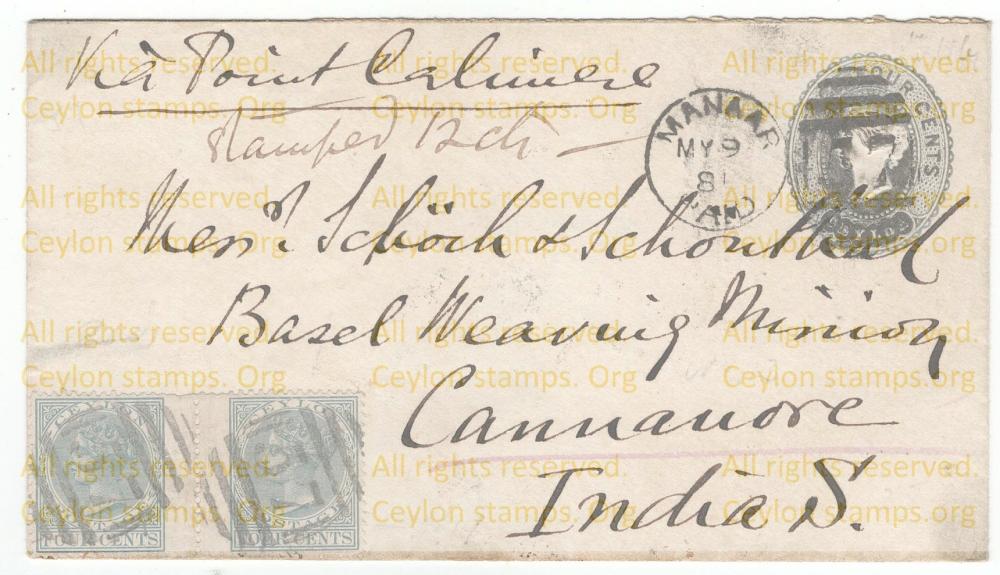 Via Point Calimere
stamped 12 cts
FOUR CENTS
MANAAR
MY 9
81
PAID
Messrs Schoch & Schonthal
Basel Weaving Mission
Cannanore
India S.
CEYLON
POSTAGE
FOUR CENTS
CEYLON
POSTAGE
FOUR CENTS
All rights reserved. All rights reserved. All rights reserved.
Ceylon stamps. Org Ceylon stamps. Org Ceylon stamps.org
All rights reserved. All rights reserved. All rights reserved.
Ceylon stamps. Org Ceylon stamps. Org Ceylon stamps.org
All rights reserved. All rights reserved. All rights reserved.
Ceylon stamps. Org Ceylon stamps. Org Ceylon stamps.org
All rights reserved. All rights reserved. All rights reserved.
Ceylon stamps. Org Ceylon stamps. Org Ceylon stamps.org